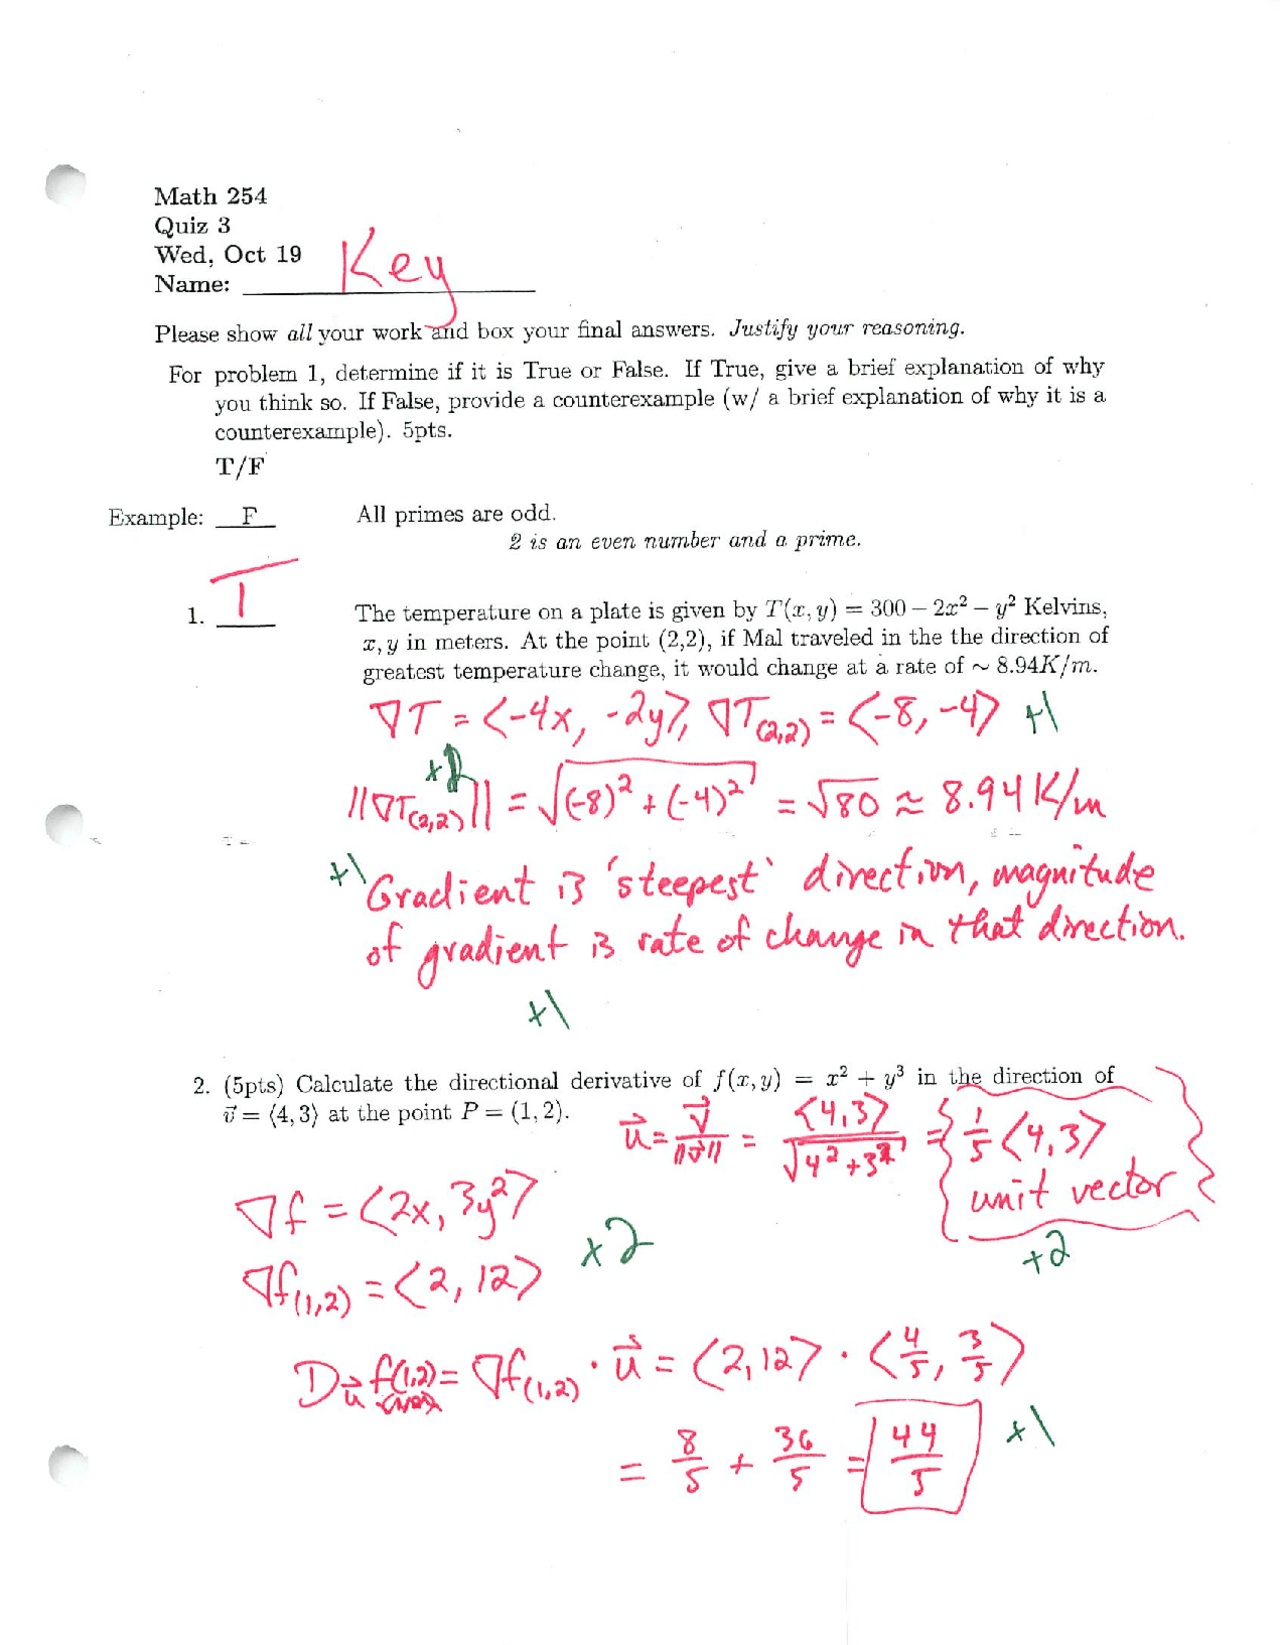 Math 254
Quiz 3
Wed, Oct 19
Name: Key
Please show all your work and box your final answers. Justify your reasoning.
For problem 1, determine if it is True or False. If True, give a brief explanation of why
you think so. If False, provide a counterexample (w/ a brief explanation of why it is a
counterexample). 5pts.
T/F
Example: F All primes are odd.
2 is an even number and a prime.
1. T The temperature on a plate is given by T(x, y) = 300 − 2x² − y² Kelvins,
x, y in meters. At the point (2,2), if Mal traveled in the the direction of
greatest temperature change, it would change at a rate of ~ 8.94K/m.
∇T = ⟨-4x, -2y⟩, ∇T(2,2) = ⟨-8, -4⟩ +1
+2
||∇T(2,2)|| = √((-8)² + (-4)²) = √80 ≈ 8.94 K/m
+1 Gradient is 'steepest' direction, magnitude
of gradient is rate of change in that direction.
+1
2. (5pts) Calculate the directional derivative of f(x, y) = x² + y³ in the direction of
v⃗ = ⟨4, 3⟩ at the point P = (1, 2).
u⃗ = v⃗/||v⃗|| = ⟨4,3⟩/√(4²+3²) = 1/5 ⟨4,3⟩
unit vector
+2
∇f = ⟨2x, 3y²⟩
+2
∇f(1,2) = ⟨2, 12⟩
Du⃗ f(1,2) = ∇f(1,2) · u⃗ = ⟨2,12⟩ · ⟨4/5, 3/5⟩
= 8/5 + 36/5 = 44/5 +1